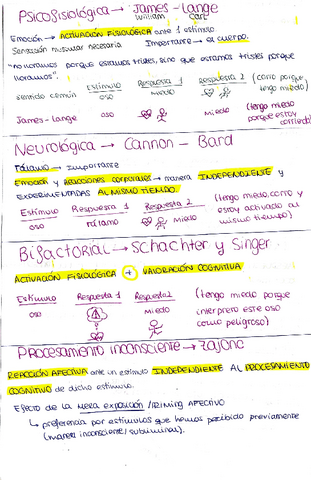 Psicofisiológica → James - Lange
William Carl
Emoción → ACTIVACIÓN FISIOLÓGICA ante 1 estímulo
Sensación muscular necesaria Importante → el cuerpo.
"no lloramos porque estamos tristes, sino que estamos tristes porque
lloramos".
Estímulo Respuesta 1 Respuesta 2 (corro porque
sentido común oso miedo tengo miedo)
James-Lange oso miedo (tengo miedo
porque estoy
corriendo)
Neurológica → Cannon - Bard
Tálamo → importante
Emoción y reacciones corporales → manera INDEPENDIENTE y
EXPERIMENTADAS AL MISMO TIEMPO.
Estímulo Respuesta 1 Respuesta 2 (tengo miedo, corro y
oso tálamo miedo estoy activado al
mismo tiempo)
Bifactorial → Schachter y Singer
ACTIVACIÓN FISIOLÓGICA + VALORACIÓN COGNITIVA
Estímulo Respuesta 1 Respuesta 2 (tengo miedo porque
oso miedo interpreto este oso
como peligroso)
Procesamiento inconsciente → Zajonc
REACCIÓN AFECTIVA ante un estímulo INDEPENDIENTE AL PROCESAMIENTO
COGNITIVO de dicho estímulo.
Efecto de la mera exposición / PRIMING AFECTIVO
↳ preferencia por estímulos que hemos percibido previamente
(manera inconsciente/subliminal).